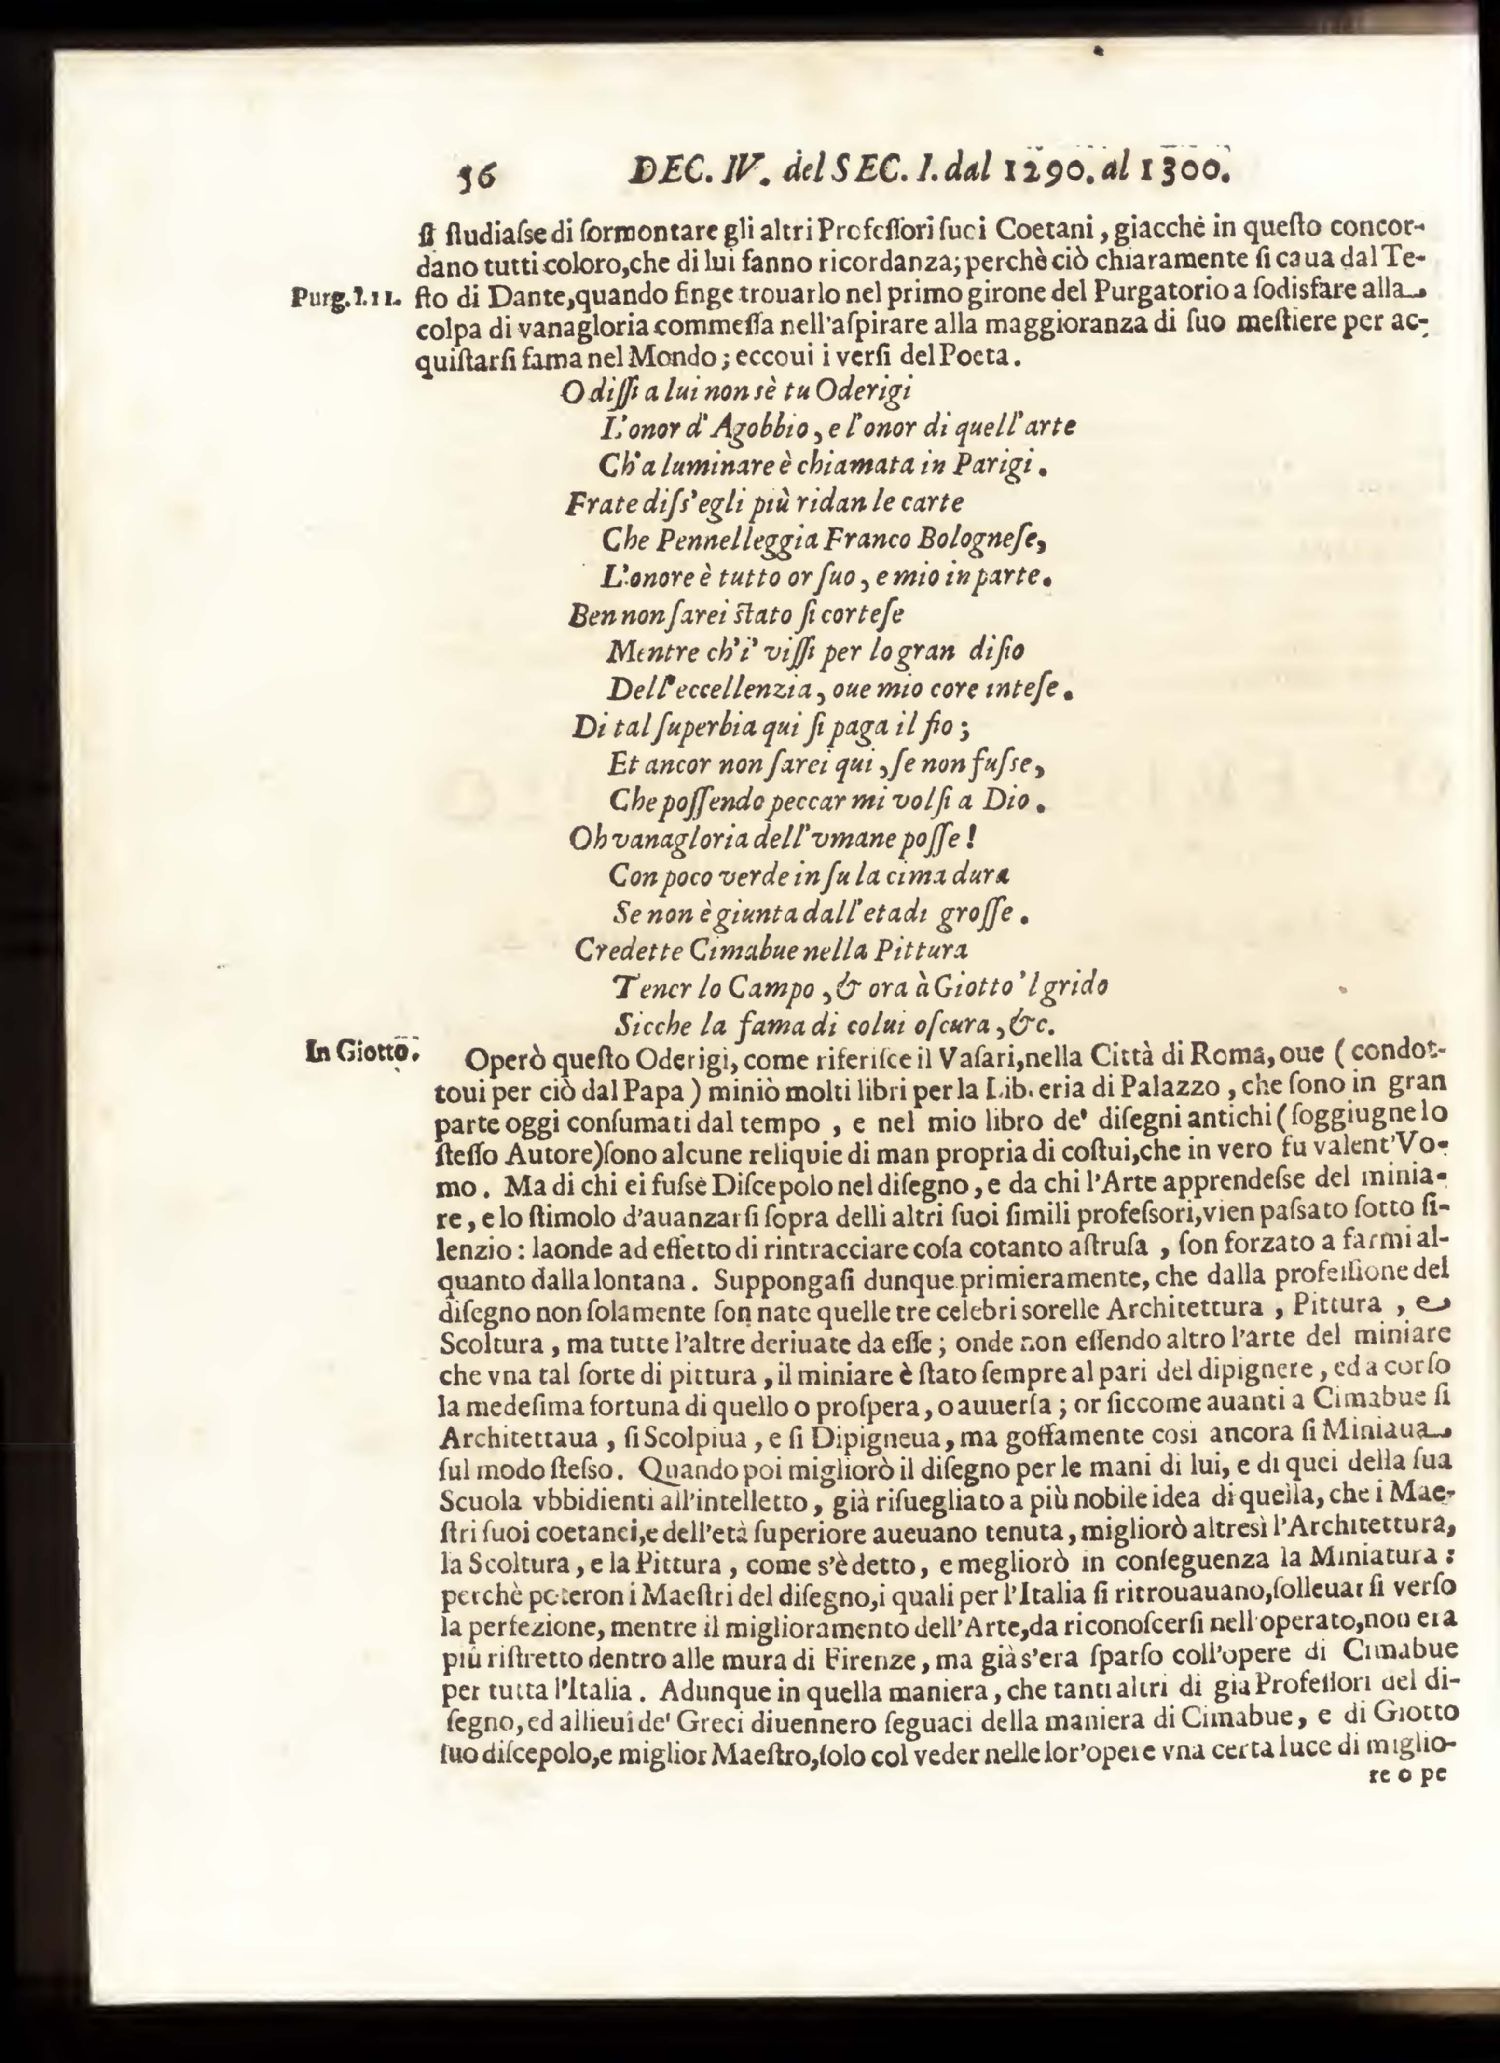 56 DEC. IV. del SEC. I. dal 1290. al 1300.
ſi ſtudiaſse di ſormontare gli altri Profeſſori ſuoi Coetani, giacchè in queſto concor-
dano tutti coloro, che di lui fanno ricordanza; perchè ciò chiaramente ſi caua dal Te-
Purg. 1.11. ſto di Dante, quando finge trouarlo nel primo girone del Purgatorio a ſodisfare alla
colpa di vanagloria commeſſa nell'aſpirare alla maggioranza di ſuo meſtiere per ac-
quiſtarſi fama nel Mondo; eccoui i verſi del Poeta.
O diſſi a lui non sè tu Oderigi
L'onor d'Agobbio, e l'onor di quell'arte
Ch'a luminare è chiamata in Parigi.
Frate diſs'egli più ridan le carte
Che Pennelleggia Franco Bologneſe,
L'onore è tutto or ſuo, e mio in parte.
Ben non ſarei ſtato ſi corteſe
Mentre ch'i' viſſi per lo gran diſio
Dell'eccellenzia, oue mio core inteſe.
Di tal ſuperbia qui ſi paga il fio;
Et ancor non ſarei qui, ſe non fuſse,
Che poſſendo peccar mi volſi a Dio.
Oh vanagloria dell'vmane poſſe!
Con poco verde in ſu la cima dura
Se non è giunta dall'etadi groſſe.
Credette Cimabue nella Pittura
Tener lo Campo, & ora à Giotto 'l grido
Sicche la fama di colui oſcura, &c.
In Giotto. Operò queſto Oderigi, come riferiſce il Vaſari, nella Città di Roma, oue (condot-
toui per ciò dal Papa) miniò molti libri per la Libreria di Palazzo, che ſono in gran
parte oggi conſumati dal tempo, e nel mio libro de' diſegni antichi (ſoggiugne lo
ſteſſo Autore) ſono alcune reliquie di man propria di coſtui, che in vero fu valent'Vo-
mo. Ma di chi ei fuſse Diſcepolo nel diſegno, e da chi l'Arte apprendeſse del minia-
re, e lo ſtimolo d'auanzarſi ſopra delli altri ſuoi ſimili profeſsori, vien paſsato ſotto ſi-
lenzio: laonde ad effetto di rintracciare coſa cotanto aſtruſa, ſon forzato a farmi al-
quanto dalla lontana. Suppongaſi dunque primieramente, che dalla profeſſione del
diſegno non ſolamente ſon nate quelle tre celebri sorelle Architettura, Pittura, e
Scoltura, ma tutte l'altre deriuate da eſſe; onde non eſſendo altro l'arte del miniare
che vna tal ſorte di pittura, il miniare è ſtato ſempre al pari del dipignere, ed a corſo
la medeſima fortuna di quello o proſpera, o auuerſa; or ſiccome auanti a Cimabue ſi
Architettaua, ſi Scolpiua, e ſi Dipigneua, ma goffamente così ancora ſi Miniaua
ſul modo ſteſso. Quando poi migliorò il diſegno per le mani di lui, e di quei della ſua
Scuola vbbidienti all'intelletto, già riſuegliato a più nobile idea di quella, che i Mae-
ſtri ſuoi coetanei, e dell'età ſuperiore aueuano tenuta, migliorò altresì l'Architettura,
la Scoltura, e la Pittura, come s'è detto, e megliorò in conſeguenza la Miniatura:
perchè poteron i Maeſtri del diſegno, i quali per l'Italia ſi ritrouauano, ſolleuarſi verſo
la perfezione, mentre il miglioramento dell'Arte, da riconoſcerſi nell'operato, non era
più riſtretto dentro alle mura di Firenze, ma già s'era ſparſo coll'opere di Cimabue
per tutta l'Italia. Adunque in quella maniera, che tanti altri di già Profeſſori del di-
ſegno, ed allieui de' Greci diuennero ſeguaci della maniera di Cimabue, e di Giotto
ſuo diſcepolo, e miglior Maeſtro, ſolo col veder nelle lor'opere vna certa luce di miglio-
re o pe